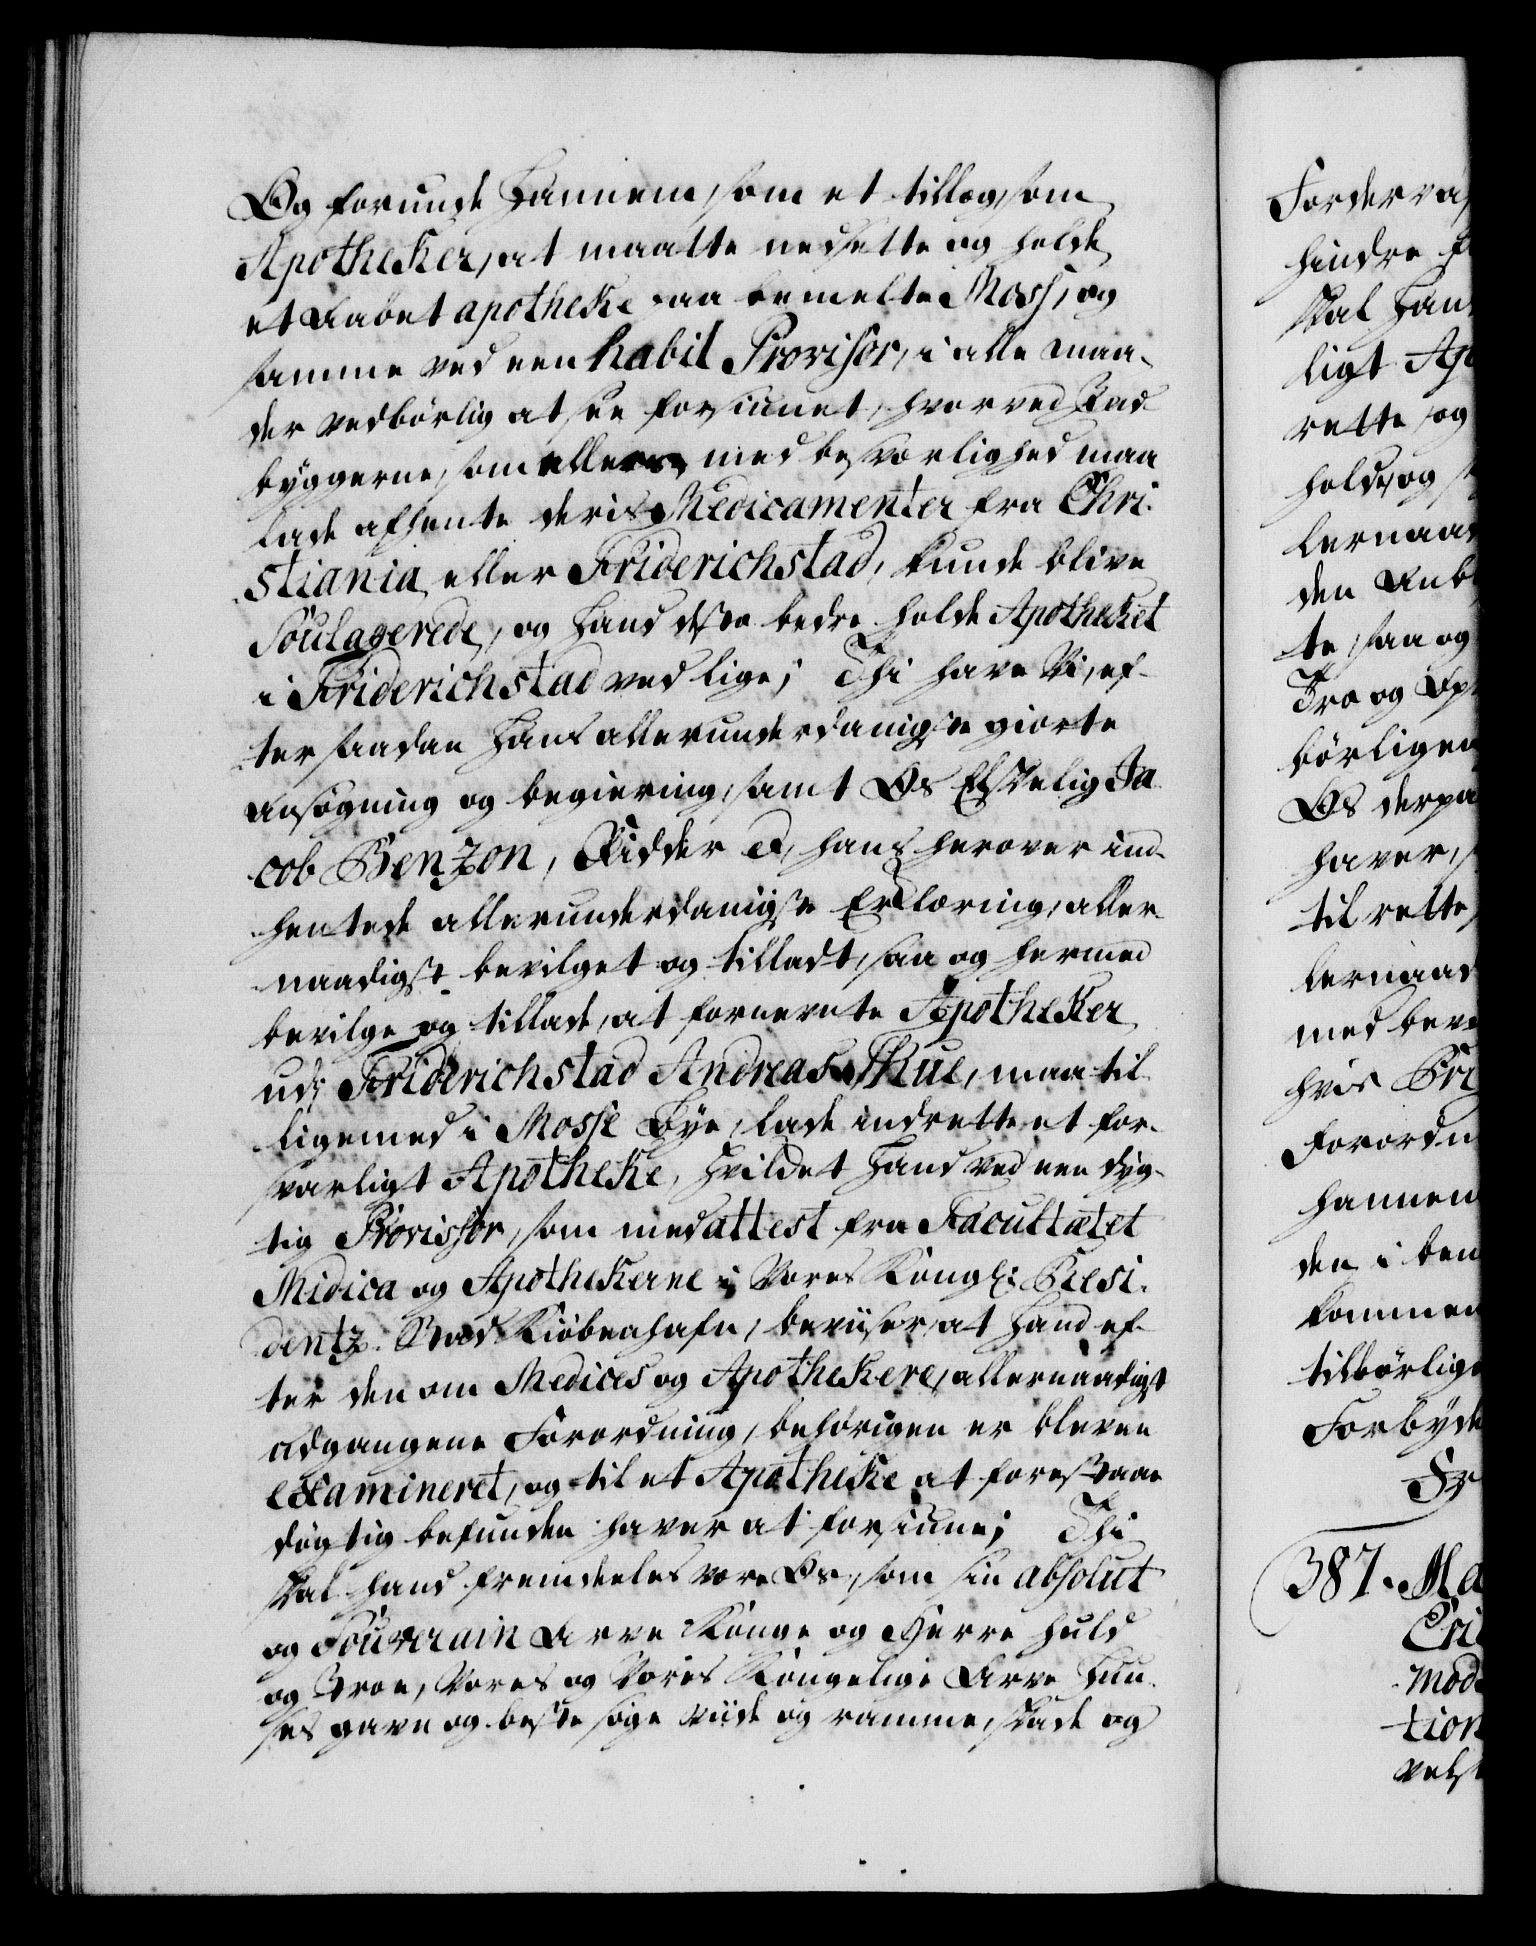 Og forunde Hannem, som et tillæg, som
Apotheker, at maatte nedsette og holde
et Aabet apotheke paa bemelte Moss, og
samme ved een habil Provisor, i alle maa-
der vedbørlig at see forsiunet, hvorved Ind-
byggerne, som ellers med besværlighed maa
lade afhente deris Medicamenter fra Chri-
stiania eller Friderichstad, kunde blive
Soulagerede, og Hand desto bedre holde Apotheket
i Friderichstad ved lige; Thi have Vi, ef-
ter saadan Hans allerunderdanigste giorte
ansøgning og begiering, samt Os Elskelig Ja-
cob Benzon, Ridder &, hans herover ind-
hentede allerunderdanigste Erklæring, aller-
naadigst bevilget og tilladt, saa og hermed
bevilge og tillade, at fornevnte Apotheker
udi Friderichstad Andreas Thue, maa til-
ligemed i Mosse Bye, lade indrette et for-
svarligt Apotheke, hvilket Hand ved een dyg-
tig Provissor, som med attest fra Facultætet
Midica og Apothekerne i Vores Kongl: Resi-
dentz-Stad Kiøbenhafn, beviiser, at Hand ef-
ter den om Medices og Apothekere, allernaadigst
udgangene Forordning, behørigen er bleven
examineret, og til et Apotheke at forestaae
døgtig befunden haver at forsiune; Thi
skal hand fremdeles være Os, som sin absolut
og Souverain Arve Konge og Herre huld
og Troe, Vores og Vores Kongelige Arve Huu-
ses gavn og beste søge viide og ramme, skade og
Forderva
hindre
skal Han
ligt Ap
rette og
holde, og
lernaad
den Aab
te, saa og
Tro og Op
børligen
Os derpa
haver,
til rette
lernaad
med bev
hvis Bri
Forordn
hannem
den i ben
kommen
tilbørlige
Forbyde
Fr
387. Ma
Cri
mod
tion
vels